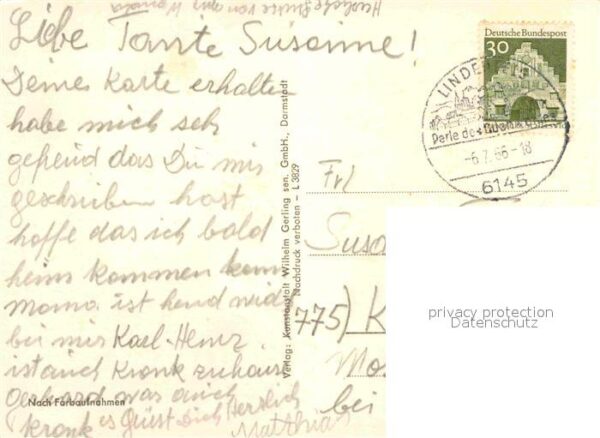 Herzliche Grüsse von
Liebe Tante Susanne!
Deine Karte erhalten
habe mich sehr
gefreud das Du mir
geschrieben hast
hoffe das ich bald
heim kommen kann
Mama ist heud wid
bei mir Karl-Heinz
ist auch Krank zuhause
gerhard was auch
Krank es grüst Dich Herzlich
Matthias
Nach Farbaufnahmen
Verlag: Kunstanstalt Wilhelm Gerling sen. GmbH., Darmstadt
Nachdruck verboten - L 3829
Deutsche Bundespost
30
LINDENF
Perle des
-6.7.66-18
6145
Frl
Susa
775) K
Mo
bei
privacy protection
Datenschutz